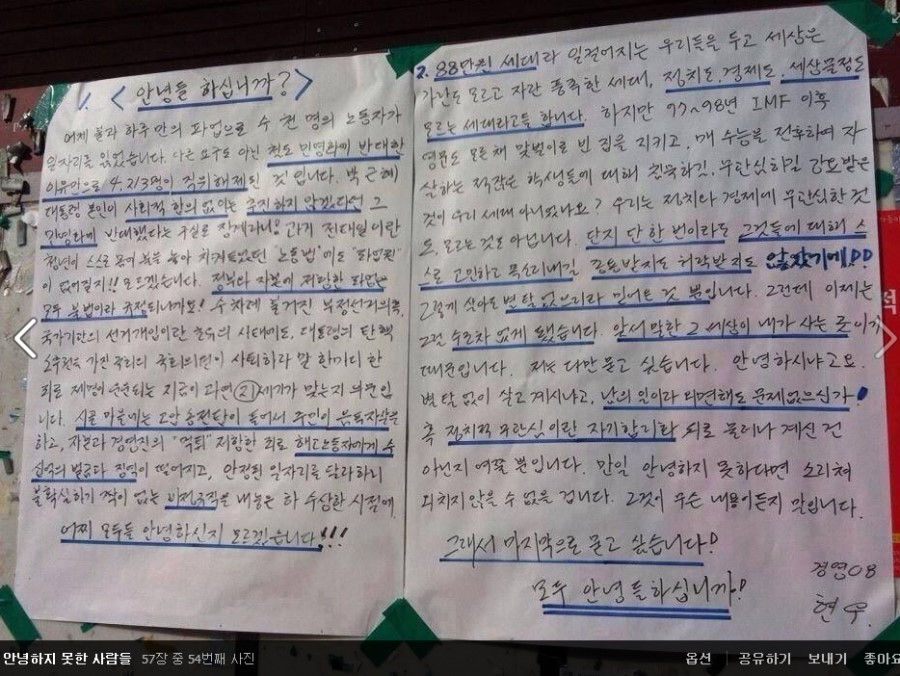 1. <안녕들 하십니까?>
어제 불과 하루만의 파업으로 수 천 명의 노동자가
일자리를 잃었습니다. 다른 요구도 아닌 철도 민영화에 반대한
이유만으로 4,213명이 직위해제된 것입니다. 박근혜
대통령 본인이 사회적 합의 없이는 추진하지 않겠다던 그
민영화에 반대했다는 구실로 징계라니! 과거 전태일이란
청년이 스스로 몸에 불을 놓아 치켜들었던 "노동법"에도 "파업권"
이 없어질지!! 모르겠습니다. 정부와 자본에 저항한 파업은
모두 불법이라 규정되니까요! 수차례 불거진 부정선거의혹,
국가기관의 선거개입이란 초유의 사태에도, 대통령의 탄핵
소추권을 가진 국회의 국회의원이 사퇴하라 말 한마디 한
죄로 제명이 운운되는 지금이 과연 21세기가 맞는지 의문입
니다. 시골 마을에는 고압 송전탑이 들어서 주민이 음독자살을
하고, 자본과 경영진의 "먹튀" 저항한 죄로 해고노동자에게 수
십억의 벌금과 징역이 떨어지고, 안정된 일자리를 달라하니
불확실하기 짝이 없는 비정규직을 내놓은 하 수상한 시절에,
어찌 모두들 안녕하신지 모르겠습니다!!!
2. 88만원 세대라 일컬어지는 우리들을 두고 세상은
가난도 모르고 자란 풍족한 세대, 정치도, 경제도, 세상물정도
모르는 세대라고들 합니다. 하지만 97~98년 IMF 이후
영문도 모른 채 맞벌이로 빈 집을 지키고, 매 수능을 전후하여 자
살하는 적잖은 학생들에 대해 침묵하길, 무관심하길 강요받은
것이 우리 세대 아니었나요? 우리는 정치와 경제에 무관심한 것
도, 모르는 것도 아닙니다. 단지 단 한 번이라도 그것들에 대해 스
스로 고민하고 목소리내길 종용받지도 허락받지도 않았기에!!
그렇게 살아도 별 탈 없으리라 믿어온 것 뿐입니다. 그런데 이제는
그럴 수조차 없게 됐습니다. 앞서 말한 그 세상이 내가 사는 곳이기
때문입니다. 저는 다만 묻고 싶습니다. 안녕하시냐고요.
별 탈 없이 살고 계시냐고, 남의 일이라 외면해도 문제없으신가!
혹 정치적 무관심이란 자기합리화 뒤로 물러나 계신 건
아닌지 여쭐 뿐입니다. 만일 안녕하지 못하다면 소리쳐
외치지 않을 수 없을 겁니다. 그것이 무슨 내용이든지 말입니다.
그래서 마지막으로 묻고 싶습니다!
모두 안녕들하십니까!
경영08
현우.
안녕하지 못한 사람들 57장 중 54번째 사진
옵션 공유하기 보내기 좋아요